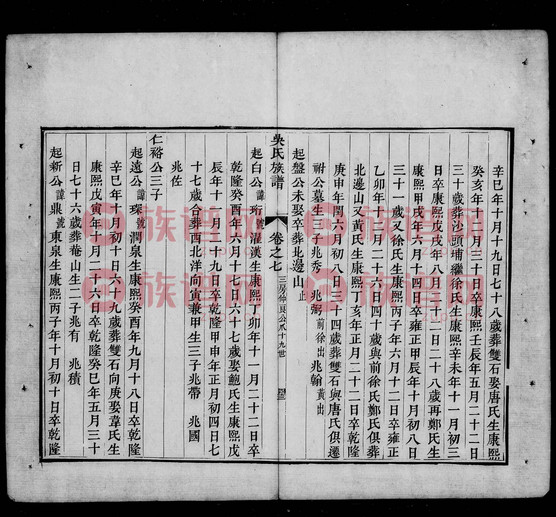 辛巳年十月十九日七十八歲葬雙石娶唐氏生康熙
癸亥年十二月三十日卒康熙壬辰年五月二十二日
三十歲葬沙頭埔繼徐氏生康熙辛未年十一月初三
日卒康熙戊戌年八月二十二日二十八歲再鄭氏生
康熙甲戌年六月十四日卒雍正甲辰年十月初八日
三十一歲又徐氏生康熙丙子年六月十二日卒雍正
乙卯年二月二十六日四十歲與前徐氏鄭氏俱葬
北邊山又黃氏生康熙丁亥年正月二十二日卒乾隆
庚申年閏六月初八日三十四歲葬雙石與唐氏俱遷
祔公墓生三子兆秀 兆弼前徐出兆翰黃出
起盤公未娶卒葬北邊山止
吳氏族譜 卷之七 三房仲良公爪十九世
起白公諱珩號濯漢生康熙丁卯年十一月二十二日卒
乾隆癸酉年六月十七日六十七歲娶鮑氏生康熙戊
辰年十一月二十九日卒乾隆甲申年正月初四日七
十七歲合葬西北洋向寅兼甲生三子兆帶 兆國
兆佐
仁裕公三子
起遠公諱琛號潤泉生康熙癸酉年九月十八日卒乾隆
辛巳年十月初十日六十九歲葬雙石向庚娶韋氏生
康熙戊寅年二月二十六日卒乾隆癸巳年五月三十
日七十六歲葬菴山生二子兆有 兆積
起新公諱鼎號東泉生康熙丙子年十月初十日卒乾隆
族譜网